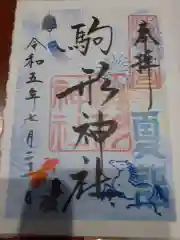 奉拝
夏詣
駒形神社
令和五年七月二十二日